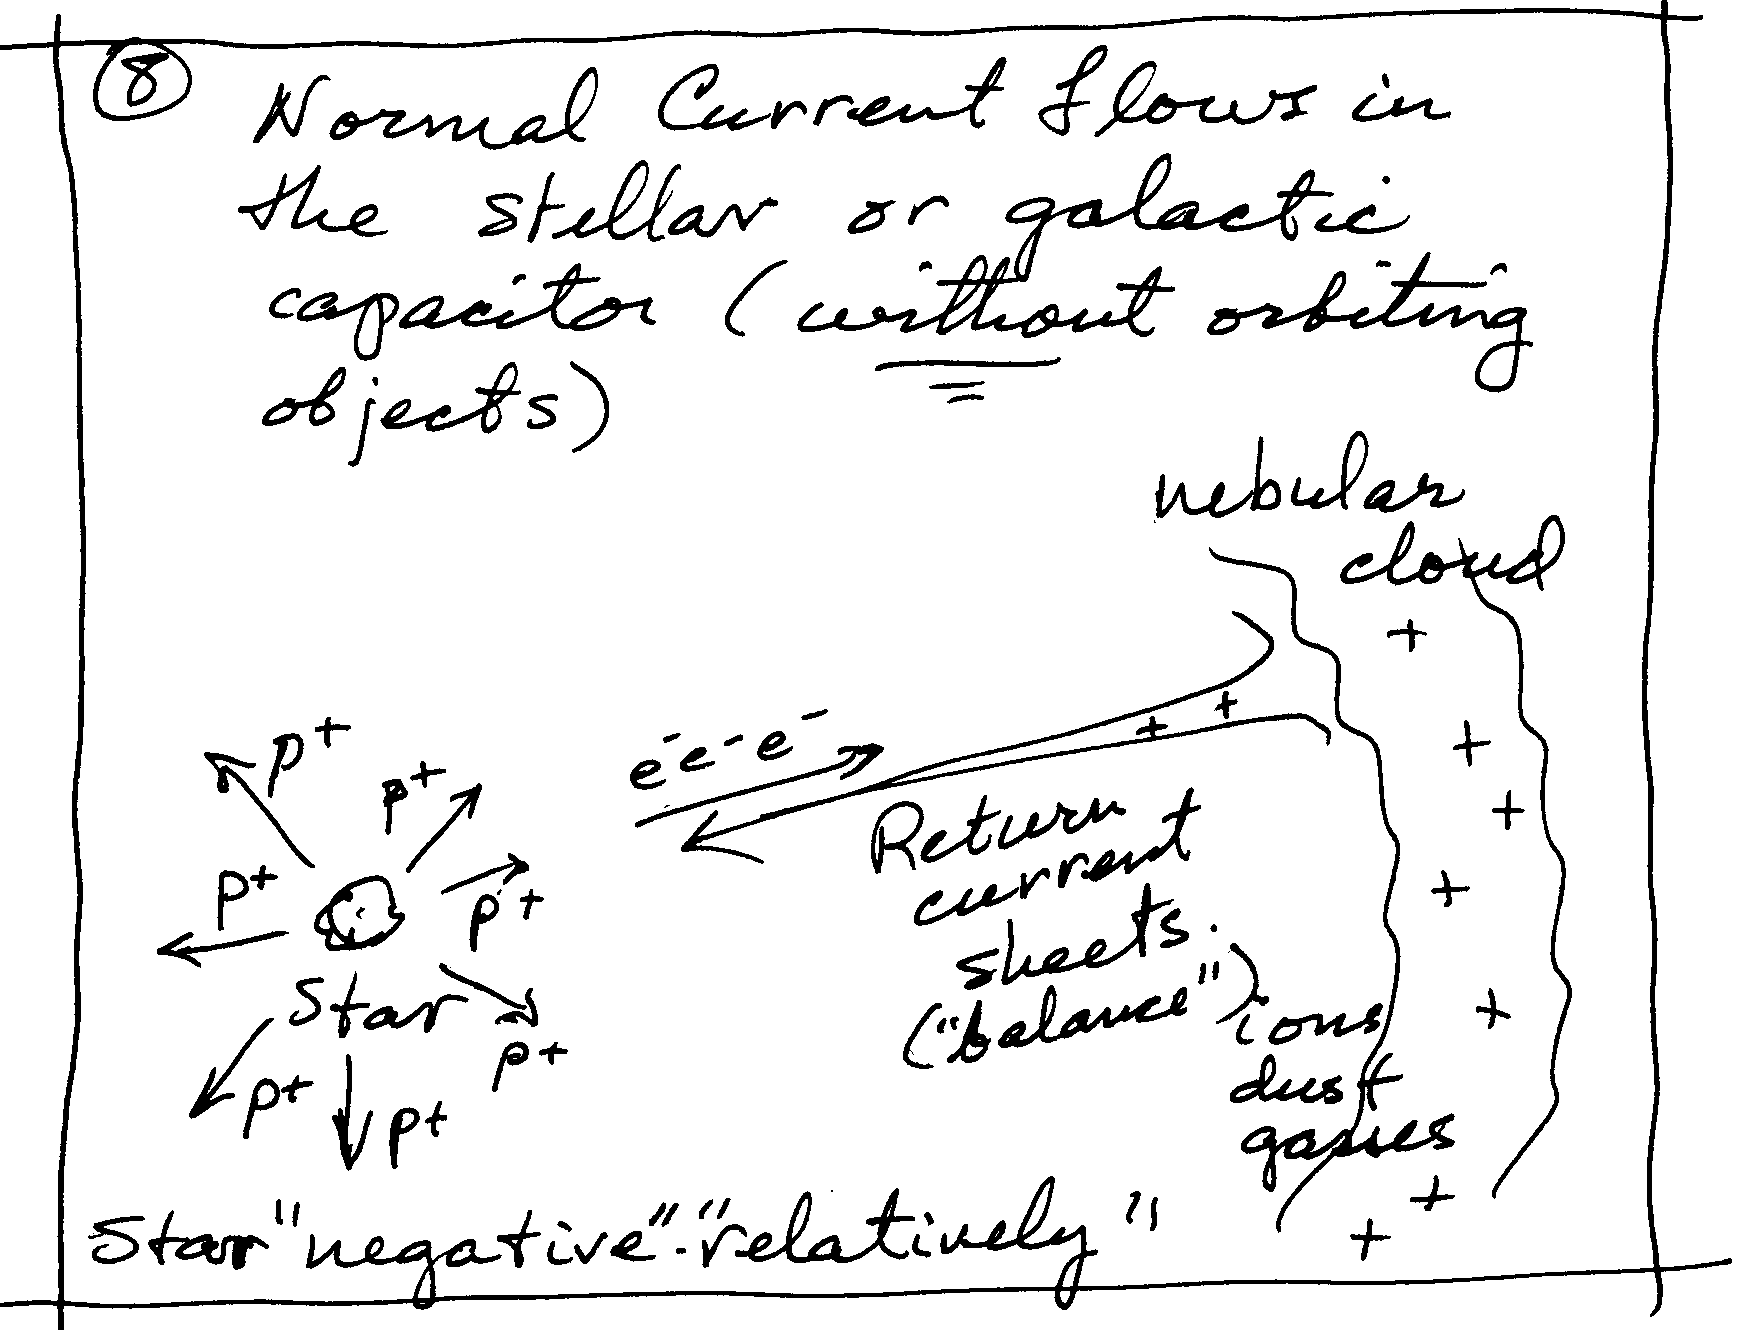 8
Normal Current flows in
the stellar or galactic
capacitor (without orbiting
objects)
nebular
cloud
+
+ +
+
+
+
+
+
+
e⁻ e⁻ e⁻
Return
current
sheets.
("balance")
ions
dust
gasses
p⁺
p⁺
p⁺
p⁺
Star
p⁺
p⁺
p⁺
Star "negative". "relatively"